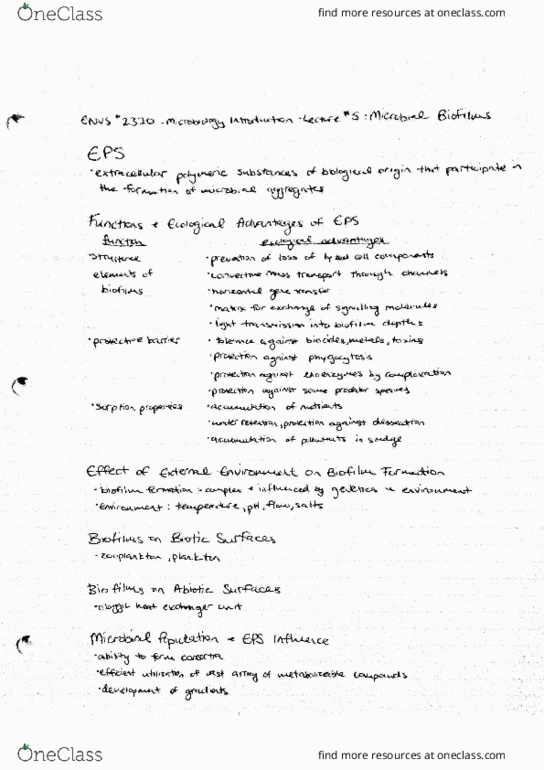 OneClass
find more resources at oneclass.com
ENVS *2320 - Microbiology Introduction - Lecture #5 : Microbial Biofilms
EPS
• extracellular polymeric substances of biological origin that participate in
the formation of microbial aggregates
Functions + Ecological Advantages of EPS
function ecological advantages
• structural • prevention of loss of lysed cell components
elements of • convective mass transport through channels
biofilms • horizontal gene transfer
• matrix for exchange of signalling molecules
• light transmission into biofilm depths
• protective barrier • tolerance against biocides, metals, toxins
• protection against phagocytosis
• protection against exoenzymes by complexation
• protection against some predator species
• Sorption properties • accumulation of nutrients
• water retention, protection against dessication
• accumulation of pollutants in sludge
Effect of External Environment on Biofilm Formation
• biofilm formation = complex + influenced by genetics + environment
• environment : temperature, pH, flow, salts
Biofilms on Biotic Surfaces
• zooplankton, plankton
Biofilms on Abiotic Surfaces
• heat exchanger unit
Microbial Population + EPS Influence
• ability to form consortia
• efficient utilization of vast array of metabolizable compounds
• development of gradients
OneClass
find more resources at oneclass.com